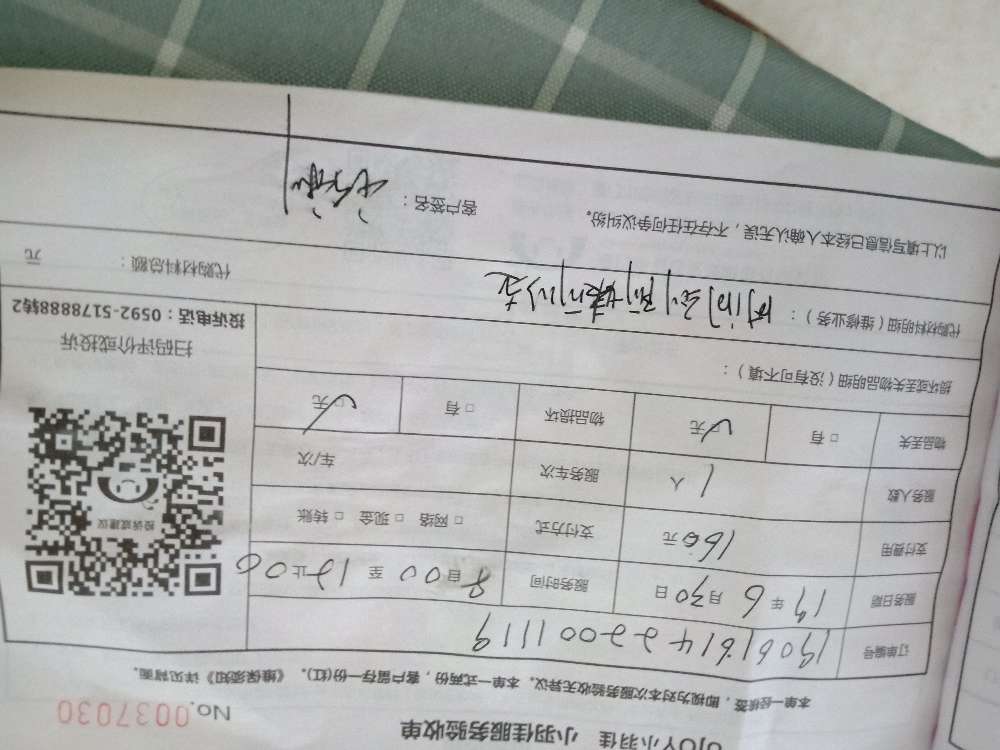 小羽佳 小羽佳服务验收单
No.0037030
本单一经核签，即视为对本次服务验收无异议。本单一式两份，客户留存一份(红)。《维保须知》详见背面。
订单编号 1906161422001119
服务日期 19年6月30日 服务时间 自8:00至12:00止
支付费用 160元 支付方式 □网络 □现金 □转账
服务人数 1人 服务车次 车/次
物品丢失 □有 ☑无 物品损坏 □有 ☑无
损坏或丢失物品明细（没有可不填）：
代购材料明细（维修业务）：
代购材料总额： 元
以上填写信息已经本人确认无误，不存在任何争议纠纷。
客户签名：
投诉或建议
扫码评价或投诉
投诉电话：0592-5178888转2